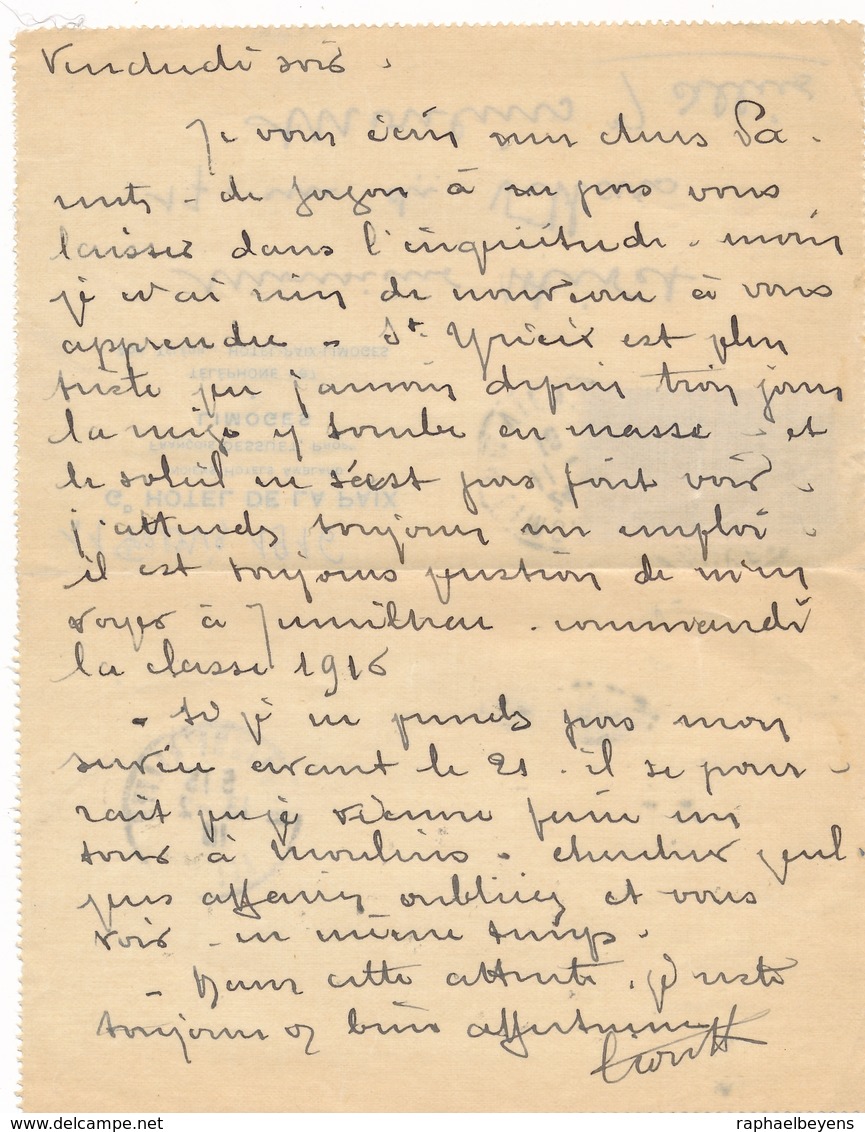 Vendredi soir.
Je vous écris mes chers Pa-
rents - de façon à ne pas vous
laisser dans l'inquiétude. mais
je n'ai rien de nouveau à vous
apprendre - St. Yrieix est plus
triste que jamais depuis trois jours
la neige y tombe en masse - et
le soleil ne s'est pas fait voir.
j'attends toujours un emploi
il est toujours question de m'en
voyer à Jumilhac. commander
la classe 1916
- Si je ne prends pas mon
service avant le 21. il se pour-
rait que je vienne faire un
tour à Moulins - chercher quel-
ques affaires oubliées et vous
voir - en même temps.
- Dans cette attente, je reste
toujours bien affectueusement
G° HOTEL DE LA PAIX
LIMOGES
delcampe.net
raphaelbeyens